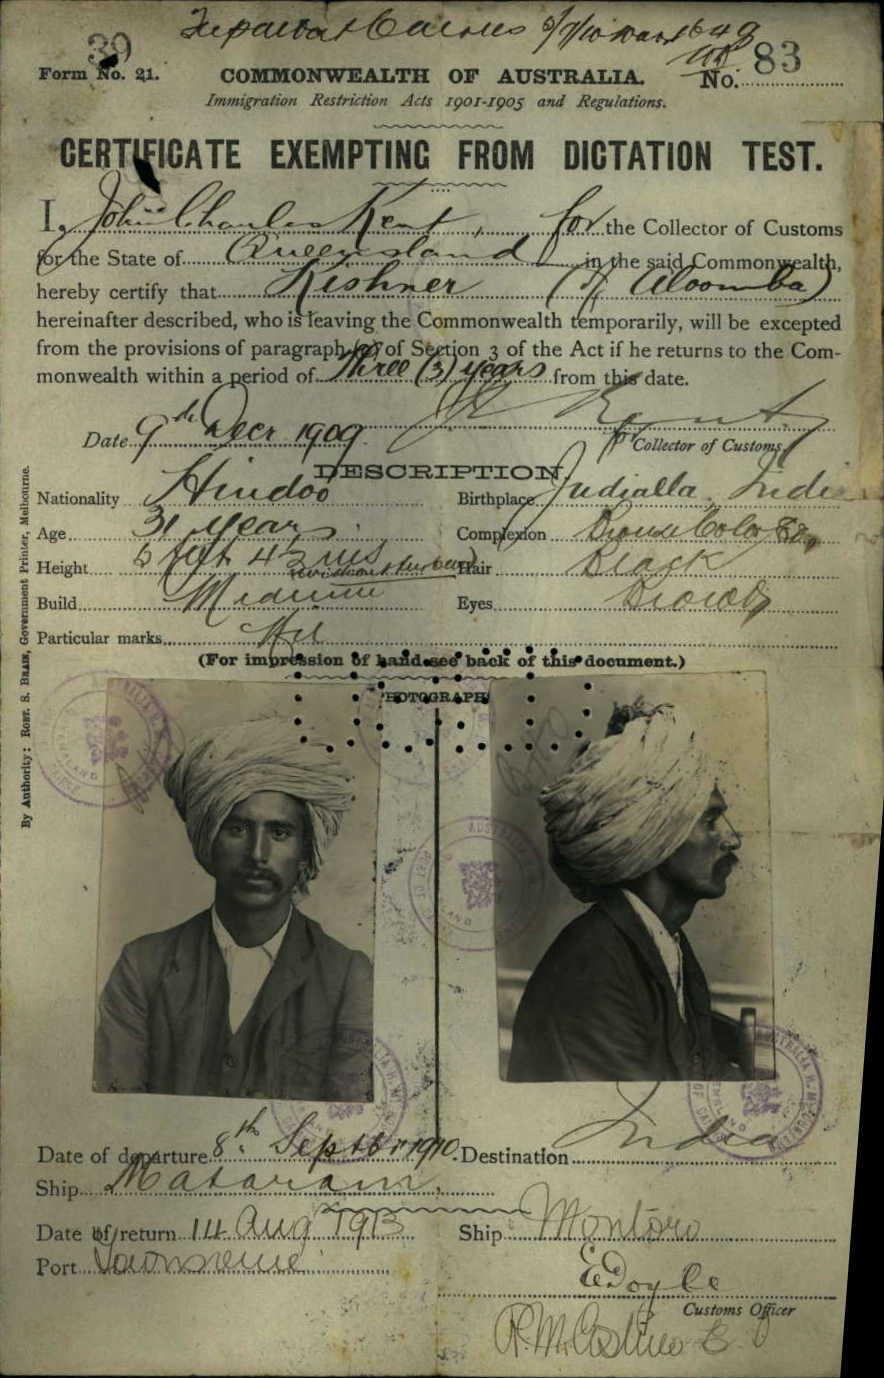 39
Form No. 21.
COMMONWEALTH OF AUSTRALIA.
No. 83
Immigration Restriction Acts 1901-1905 and Regulations.
CERTIFICATE EXEMPTING FROM DICTATION TEST.
I, John Charles Kent, for the Collector of Customs
for the State of Queensland in the said Commonwealth,
hereby certify that Kishner (of Aloomba)
hereinafter described, who is leaving the Commonwealth temporarily, will be excepted
from the provisions of paragraph (a) of Section 3 of the Act if he returns to the Com-
monwealth within a period of Three (3) years from this date.
Date 9th Decr 1909. J C Kent
for Collector of Customs
DESCRIPTION
Nationality Hindoo Birthplace India
Age 31 years. Complexion Bronze
Height 5 feet 4 ins (without turban) Hair Black
Build Medium Eyes Brown
Particular marks Nil
(For impression of hand see back of this document.)
PHOTOGRAPH
By Authority: ROBT. S. BRAIN, Government Printer, Melbourne.
Date of departure 8th Septbr 1910. Destination India
Ship Mataram.
Date of return 14 Aug 1913 Ship Montoro
Port Townsville
E Doyle
Customs Officer